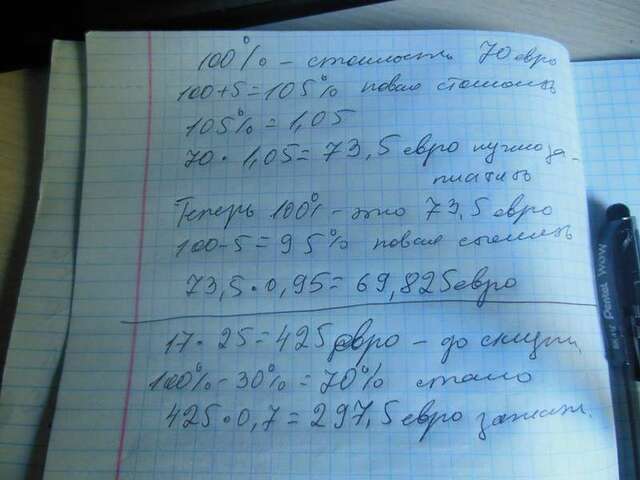 100% - стоимость 70 евро
100+5=105% новая стоимость
105% = 1,05
70 · 1,05 = 73,5 евро нужно за-
платить
Теперь 100% - это 73,5 евро
100-5=95% новая стоимость
73,5 · 0,95 = 69,825 евро
17 · 25 = 425 евро - до скидки
100% - 30% = 70% стало
425 · 0,7 = 297,5 евро
Pentel WOW